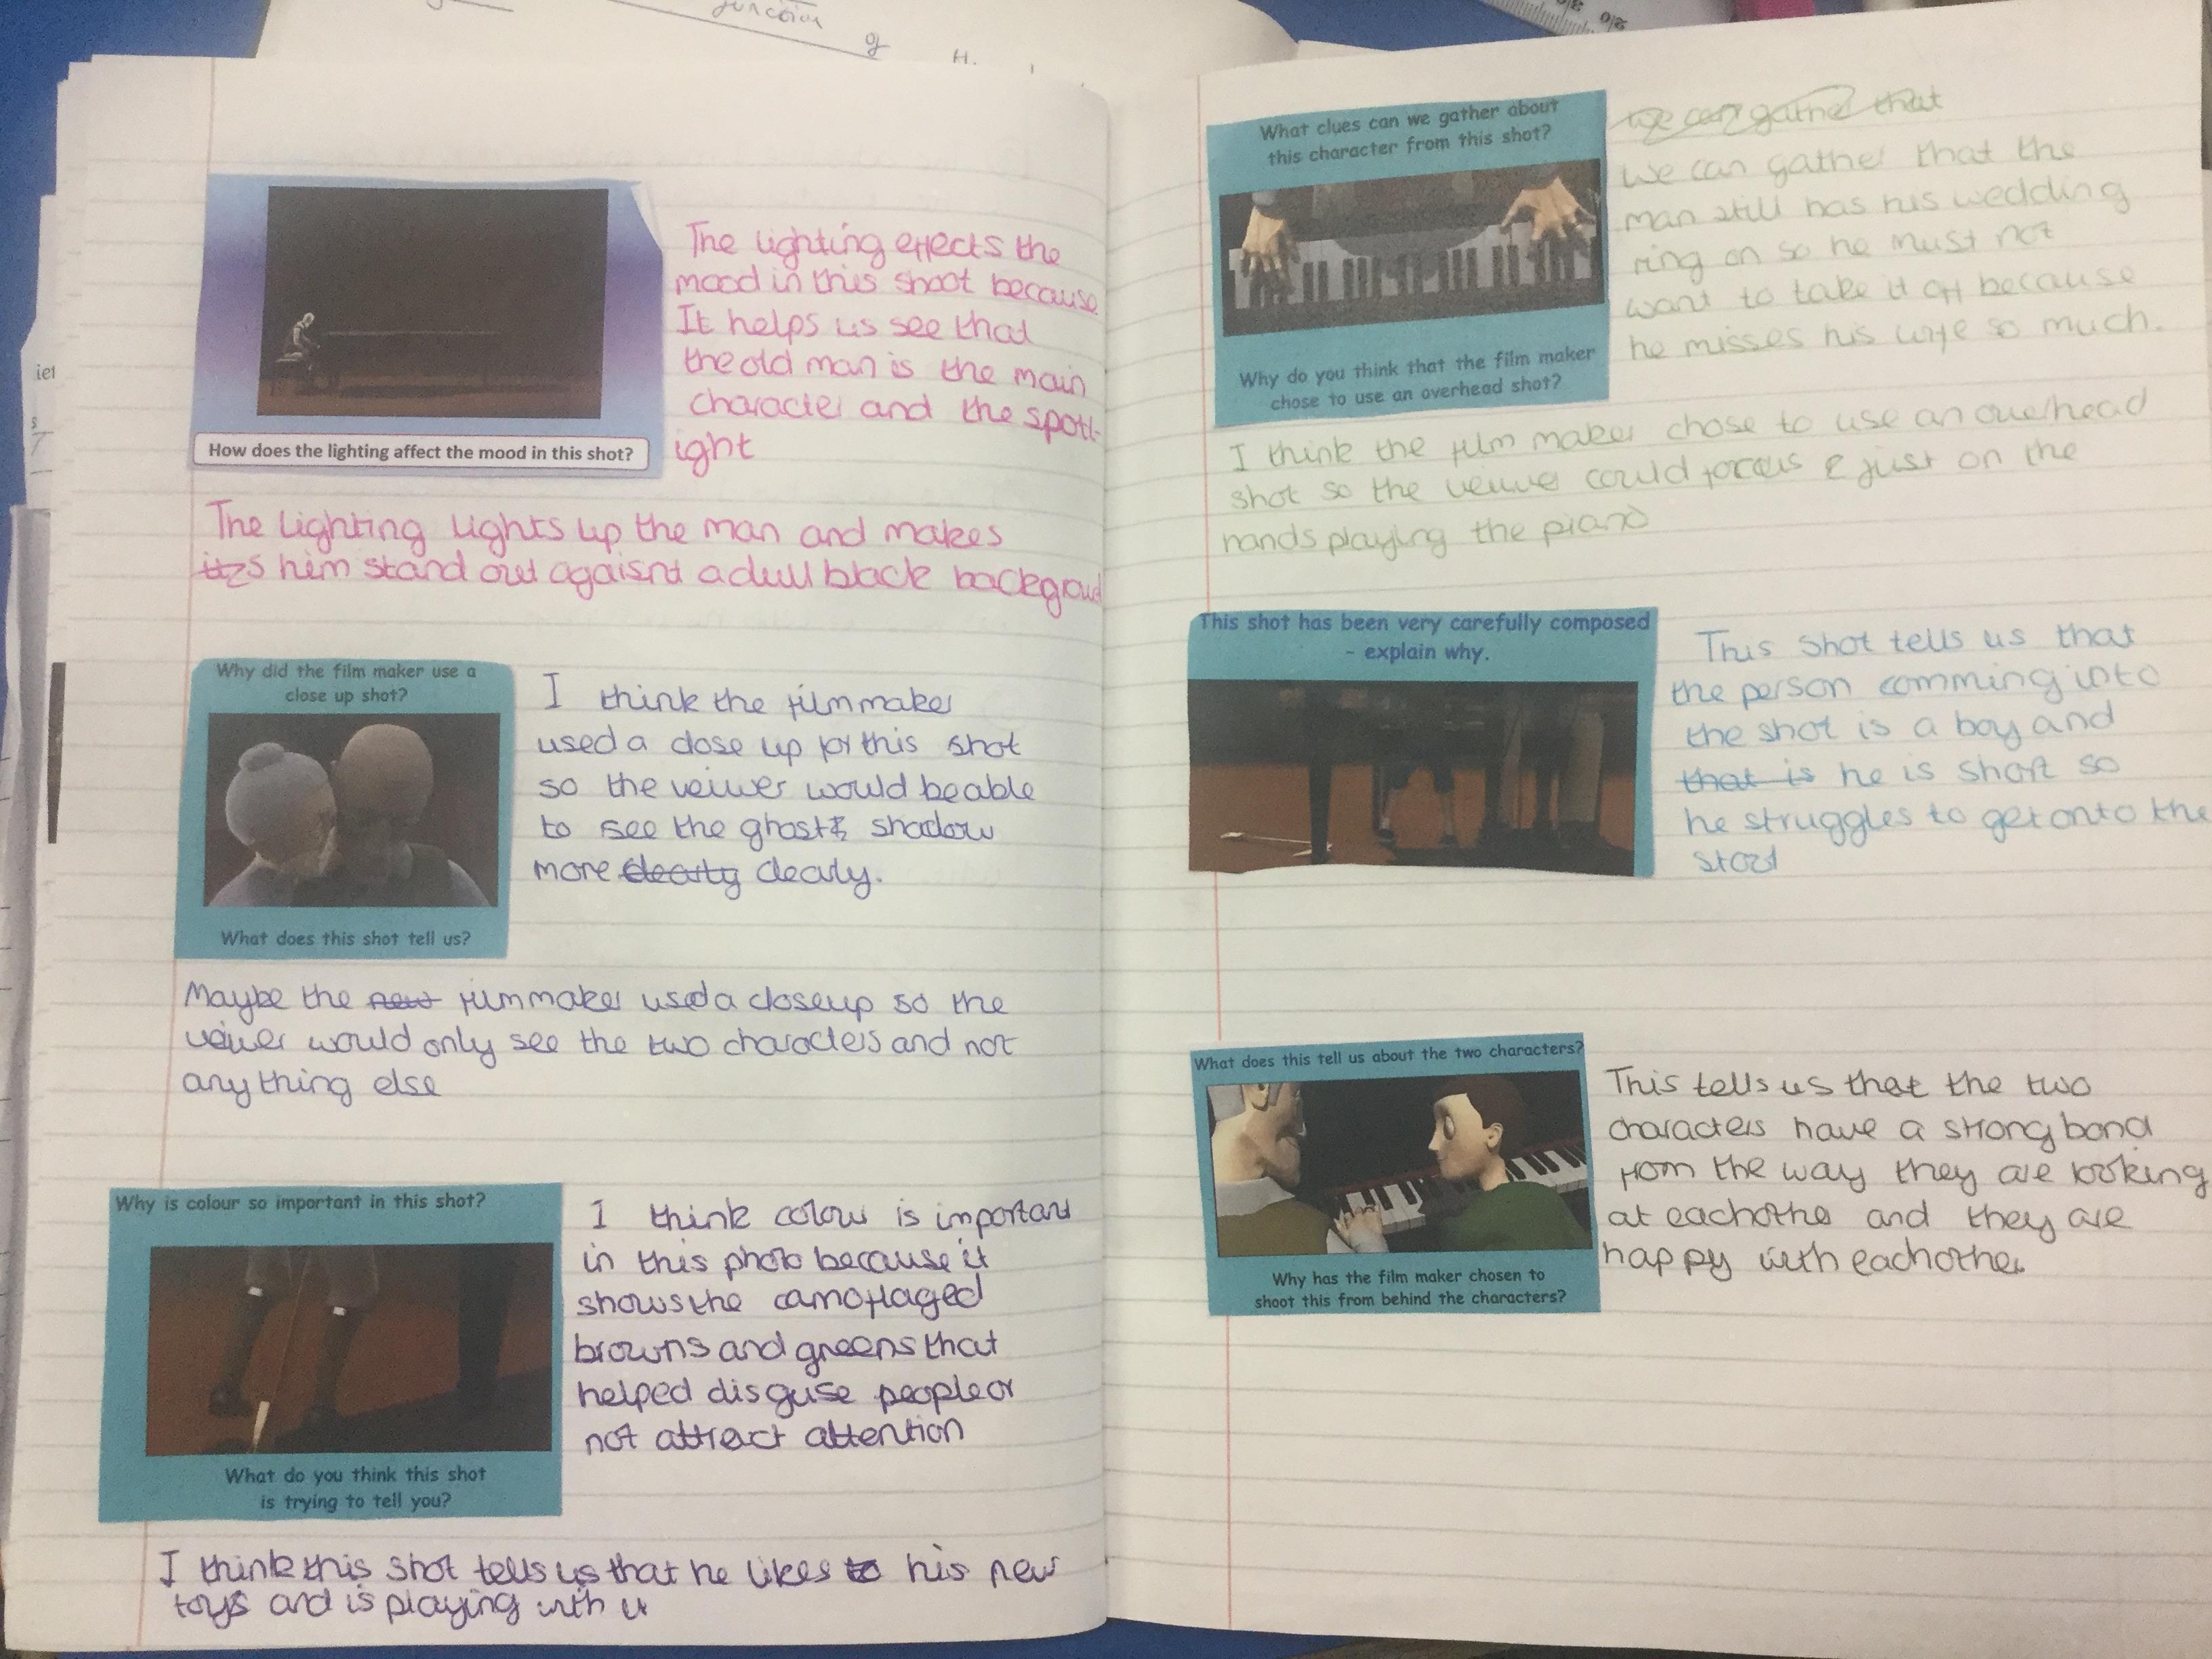 junction
of
H.
iet
s
How does the lighting affect the mood in this shot?
The lighting effects the
mood in this shoot because
It helps us see that
the old man is the main
character and the spotl-
ight
The lighting lights up the man and makes
him stand out agaisnt a dull black backgroud
Why did the film maker use a
close up shot?
What does this shot tell us?
I think the film maker
used a close up for this shot
so the veiwer would beable
to see the ghost shadow
more clearly clearly.
Maybe the new film maker used a closeup so the
veiwer would only see the two characters and not
anything else
Why is colour so important in this shot?
What do you think this shot
is trying to tell you?
I think colour is important
in this photo because it
shows the camoflaged
browns and greens that
helped disguise people or
not attract attention
I think this shot tells us that he likes to his new
toys and is playing with it
What clues can we gather about
this character from this shot?
Why do you think that the film maker
chose to use an overhead shot?
we can gather that
we can gather that the
man still has his wedding
ring on so he must not
want to take it off because
he misses his wife so much.
I think the film maker chose to use an overhead
shot so the veiwer could foccus & just on the
hands playing the piano
This shot has been very carefully composed
- explain why.
This shot tells us that
the person comming into
the shot is a boy and
that is he is short so
he struggles to get onto the
stool
What does this tell us about the two characters?
Why has the film maker chosen to
shoot this from behind the characters?
This tells us that the two
characters have a strong bond
from the way they are looking
at eachother and they are
happy with eachother.